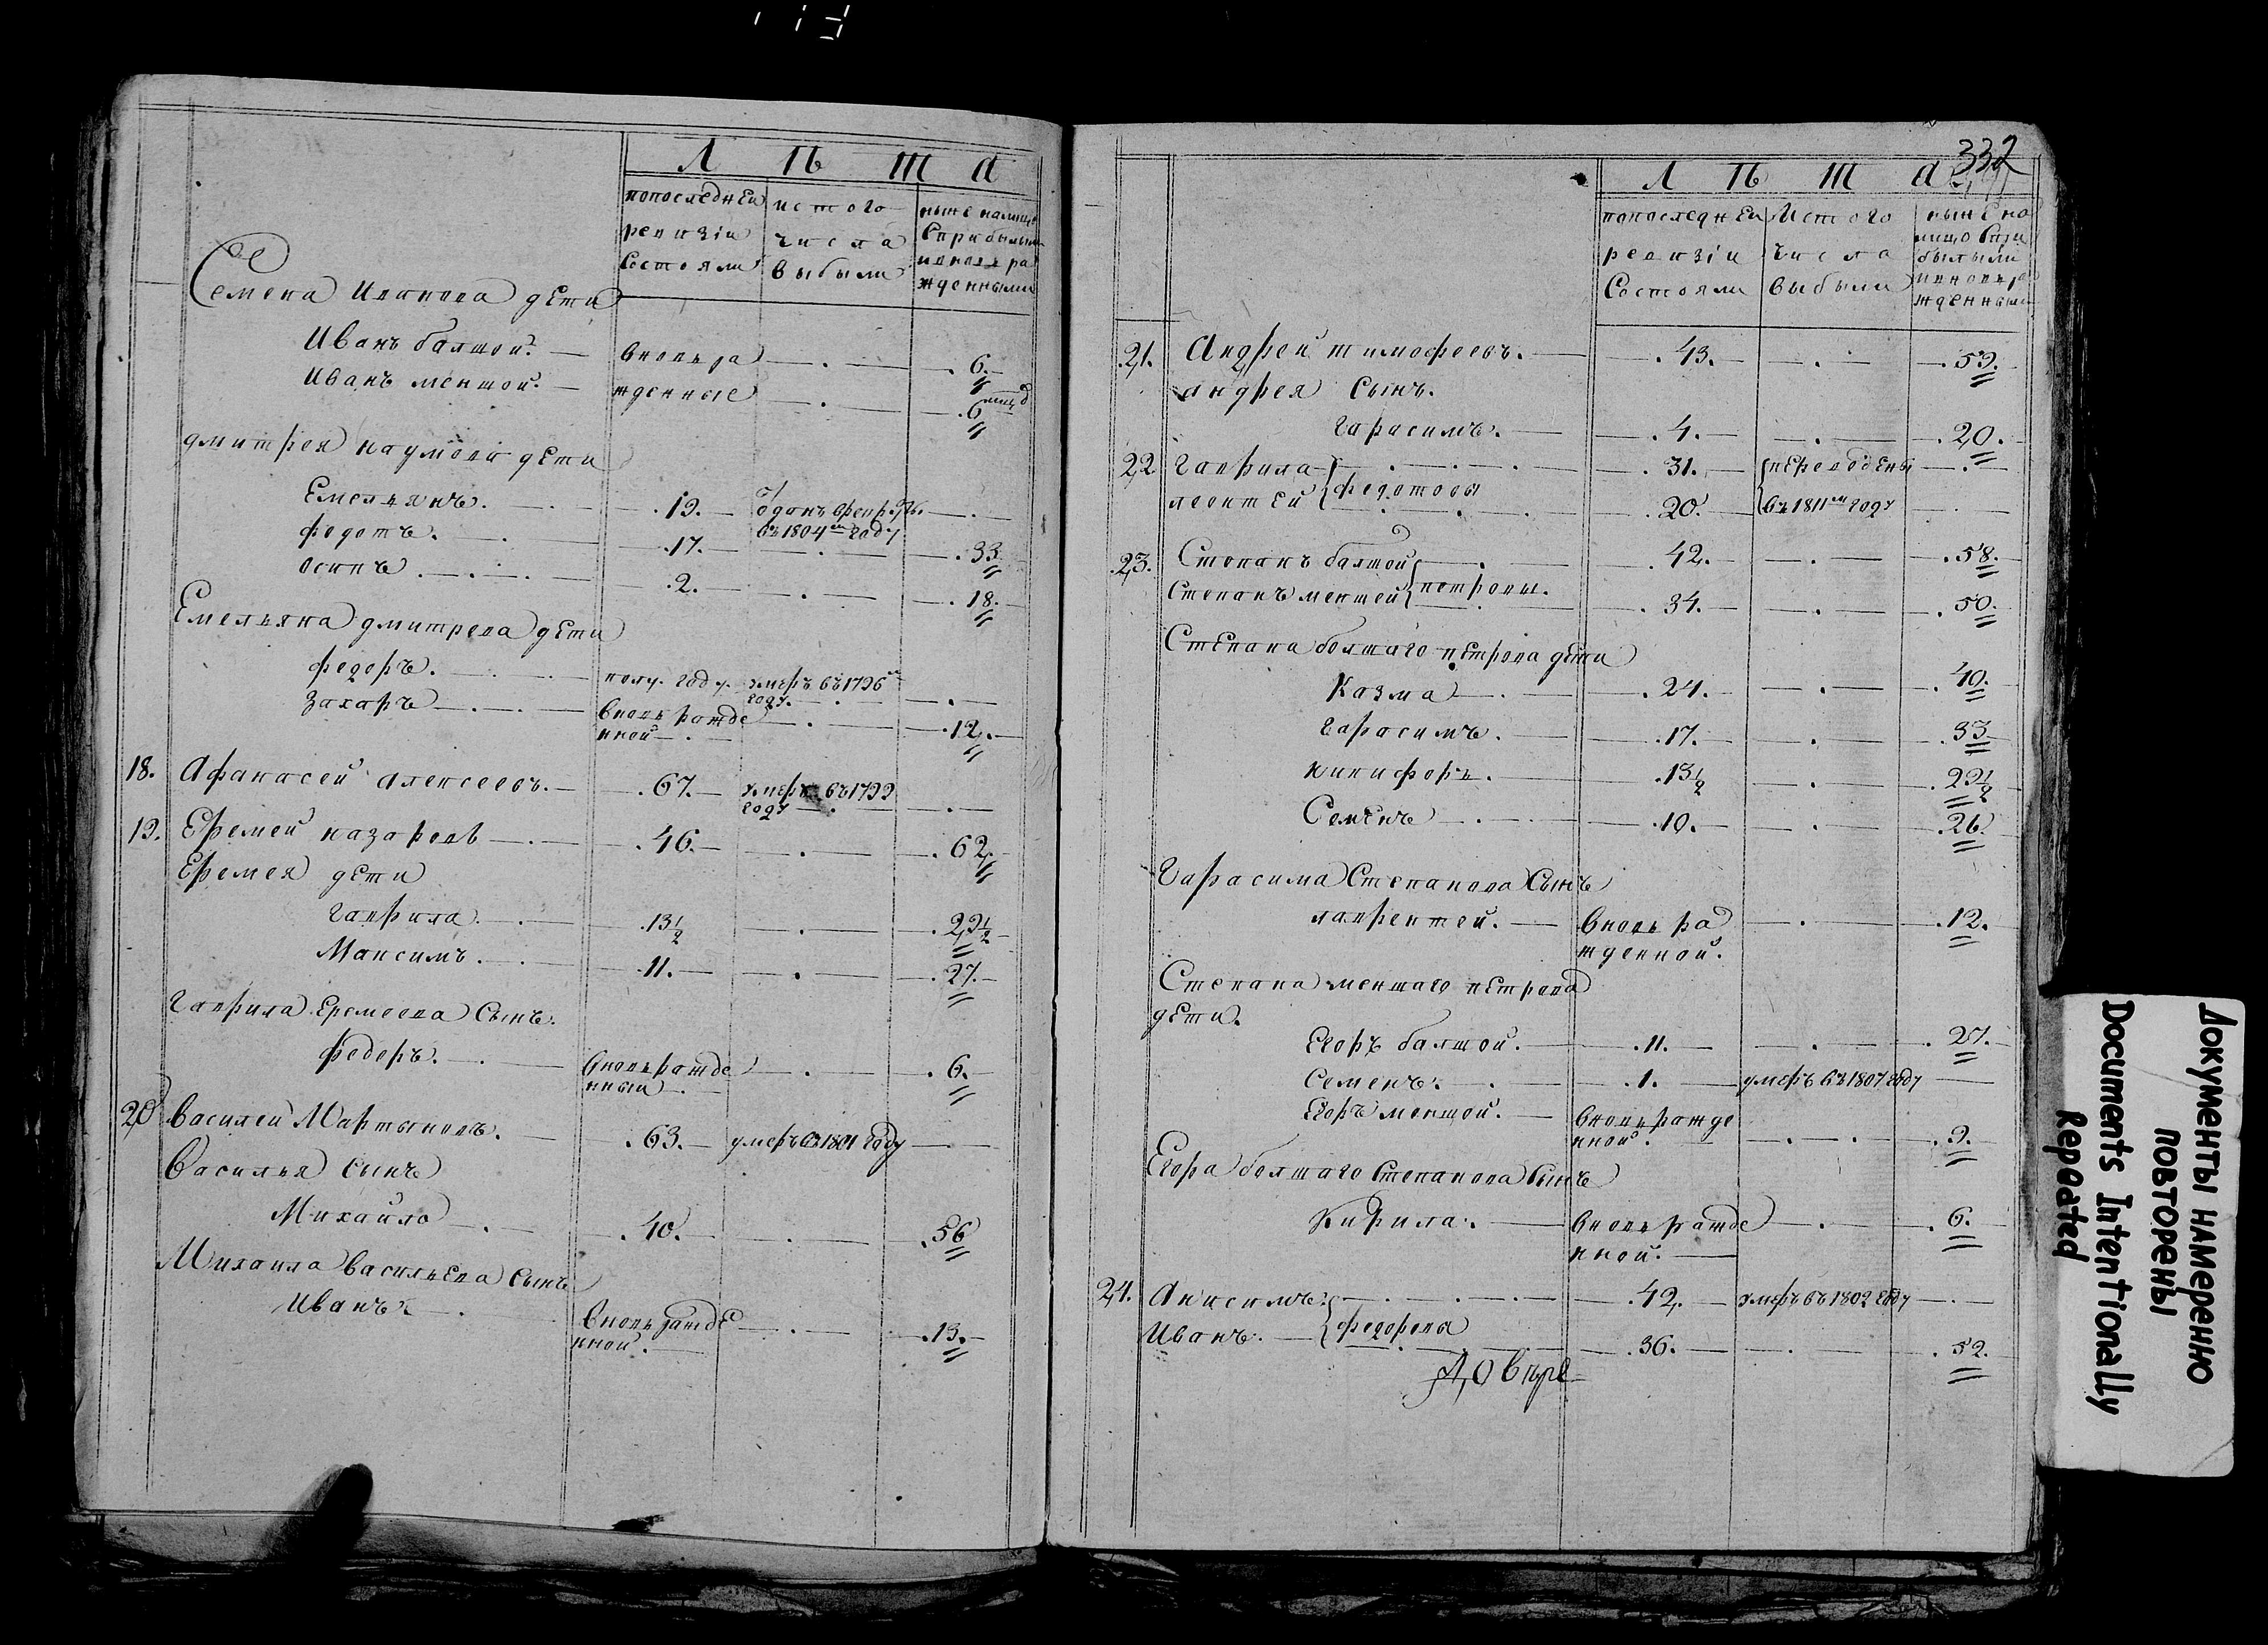 Л ѣ т а
попоследнеи истого ныне налицо
ревизiи числа Сприбылыми
Состояли выбыли ивновь ра
жденными
Семена Иванова дети
Иванъ балшой. вновь ра 6.
Иванъ меншой. жденные 6
дмитрея наумова дети
Емельянъ. 19. отданъ врекруты
въ 1804м году
федотъ. 17. 33
осипъ 2. 18.
Емельяна дмитрева дети
федоръ. полу. году. умеръ въ 1796м
году.
Захаръ вновь рожде 12.
нной
18. Афанасей алексеевъ. 67. умеръ въ 1799
году
19. Еремей назаровъ 46. 62.
Еремея дети
гаврила 13½ 29½
Максимъ. 11. 27.
гаврила Еремеева Сынъ.
федоръ. вновь рожде 6.
нный
20 василей Мартыновъ. 63. умеръ въ 1801 году
василья сынъ
Михайло 40. 56
Михаила васильева сынъ
Иванъ. вновь рожде 13.
нной.
332
Л ѣ т а
попоследнеи Истого ныне на
ревизiи числа лицо Спри
Состояли выбыли былыми
ивновь ра
жденными
21. Андрей тимофеевъ. 43. 59.
андрея Сынъ.
гарасимъ. 4. 20.
22 гаврила федотовы 31. переведены
леонтей 20. въ 1811м году
23. Степанъ балшой петровы. 42. 58.
Степанъ меншей 34. 50.
Степана болшаго петрова дети
Казма 24. 40.
гарасимъ. 17. 33
никифоръ. 13½ 29½
Семенъ 10. 26.
гарасима Степанова Сынъ
лаврентей. вновь ра 12.
жденной.
Степана меншаго петрова
дети.
Егоръ балшой. 11. 27.
Семенъ. 1. умеръ въ 1807 году
Егоръ меншой. вновь рожде 9.
нной.
Егора болшаго Степанова Сынъ
Кирила. вновь рожде 6.
нной.
24. Анисимъ федоровы 42. умеръ въ 1802 году
Иванъ. 36. 52.
Документы намеренно
повторены
Documents Intentionally
Repeated